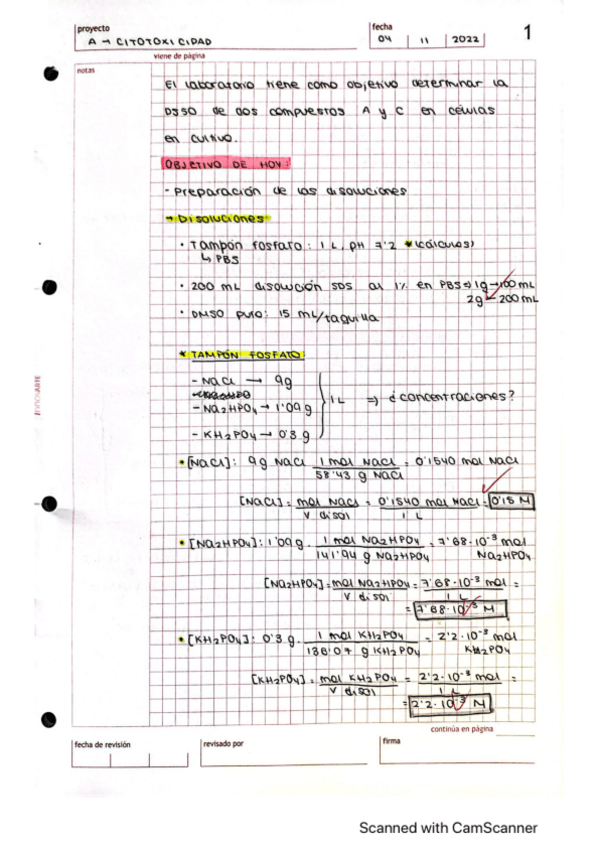 proyecto
A → CITOTOXICIDAD
fecha
04 11 2022
1
viene de página
notas
El laboratorio tiene como objetivo determinar la
DI50 de dos compuestos A y C en células
en cultivo.
OBJETIVO DE HOY:
- Preparación de las disoluciones
→ Disoluciones
• Tampón fosfato: 1 L, pH 7'2 *(cálculos)
↳ PBS
• 200 mL disolución SDS al 1% en PBS ⇒ 1g → 100 mL
2g → 200 mL
• DMSO puro: 15 mL/taquilla
* TAMPÓN FOSFATO
- NaCl → 9g
- Na2HPO4 → 1'09 g
- KH2PO4 → 0'3 g
1 L ⇒ ¿concentraciones?
• [NaCl]: 9g NaCl 1 mol NaCl / 58'43 g NaCl = 0'1540 mol NaCl
[NaCl] = mol NaCl / V disol = 0'1540 mol NaCl / 1 L = 0'15 M
• [Na2HPO4]: 1'09 g · 1 mol Na2HPO4 / 141'94 g Na2HPO4 = 7'68·10⁻³ mol Na2HPO4
[Na2HPO4] = mol Na2HPO4 / V disol = 7'68·10⁻³ mol / 1 L =
= 7'68·10⁻³ M
• [KH2PO4]: 0'3 g · 1 mol KH2PO4 / 136'07 g KH2PO4 = 2'2·10⁻³ mol KH2PO4
[KH2PO4] = mol KH2PO4 / V disol = 2'2·10⁻³ mol / 1 L =
= 2'2·10⁻³ M
continúa en página
fecha de revisión
revisado por
firma
Scanned with CamScanner